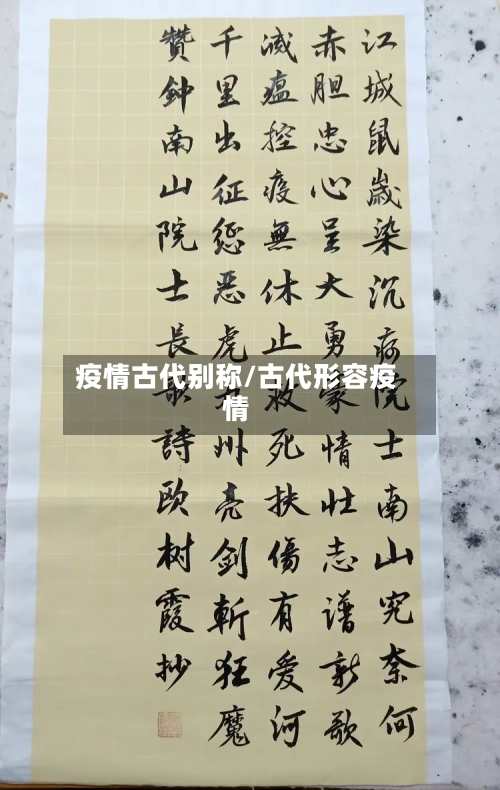 江城鼠嵗染沉疴院士南山究奈何
赤胆忠心呈大勇豪情壮志谱新歌
滅瘟控疫無休止救死扶傷有爱河
千里出征惩恶虎九州亮剑斬狂魔
贊鈡南山院士長歌詩欧树霞抄
疫情古代别称/古代形容疫
情